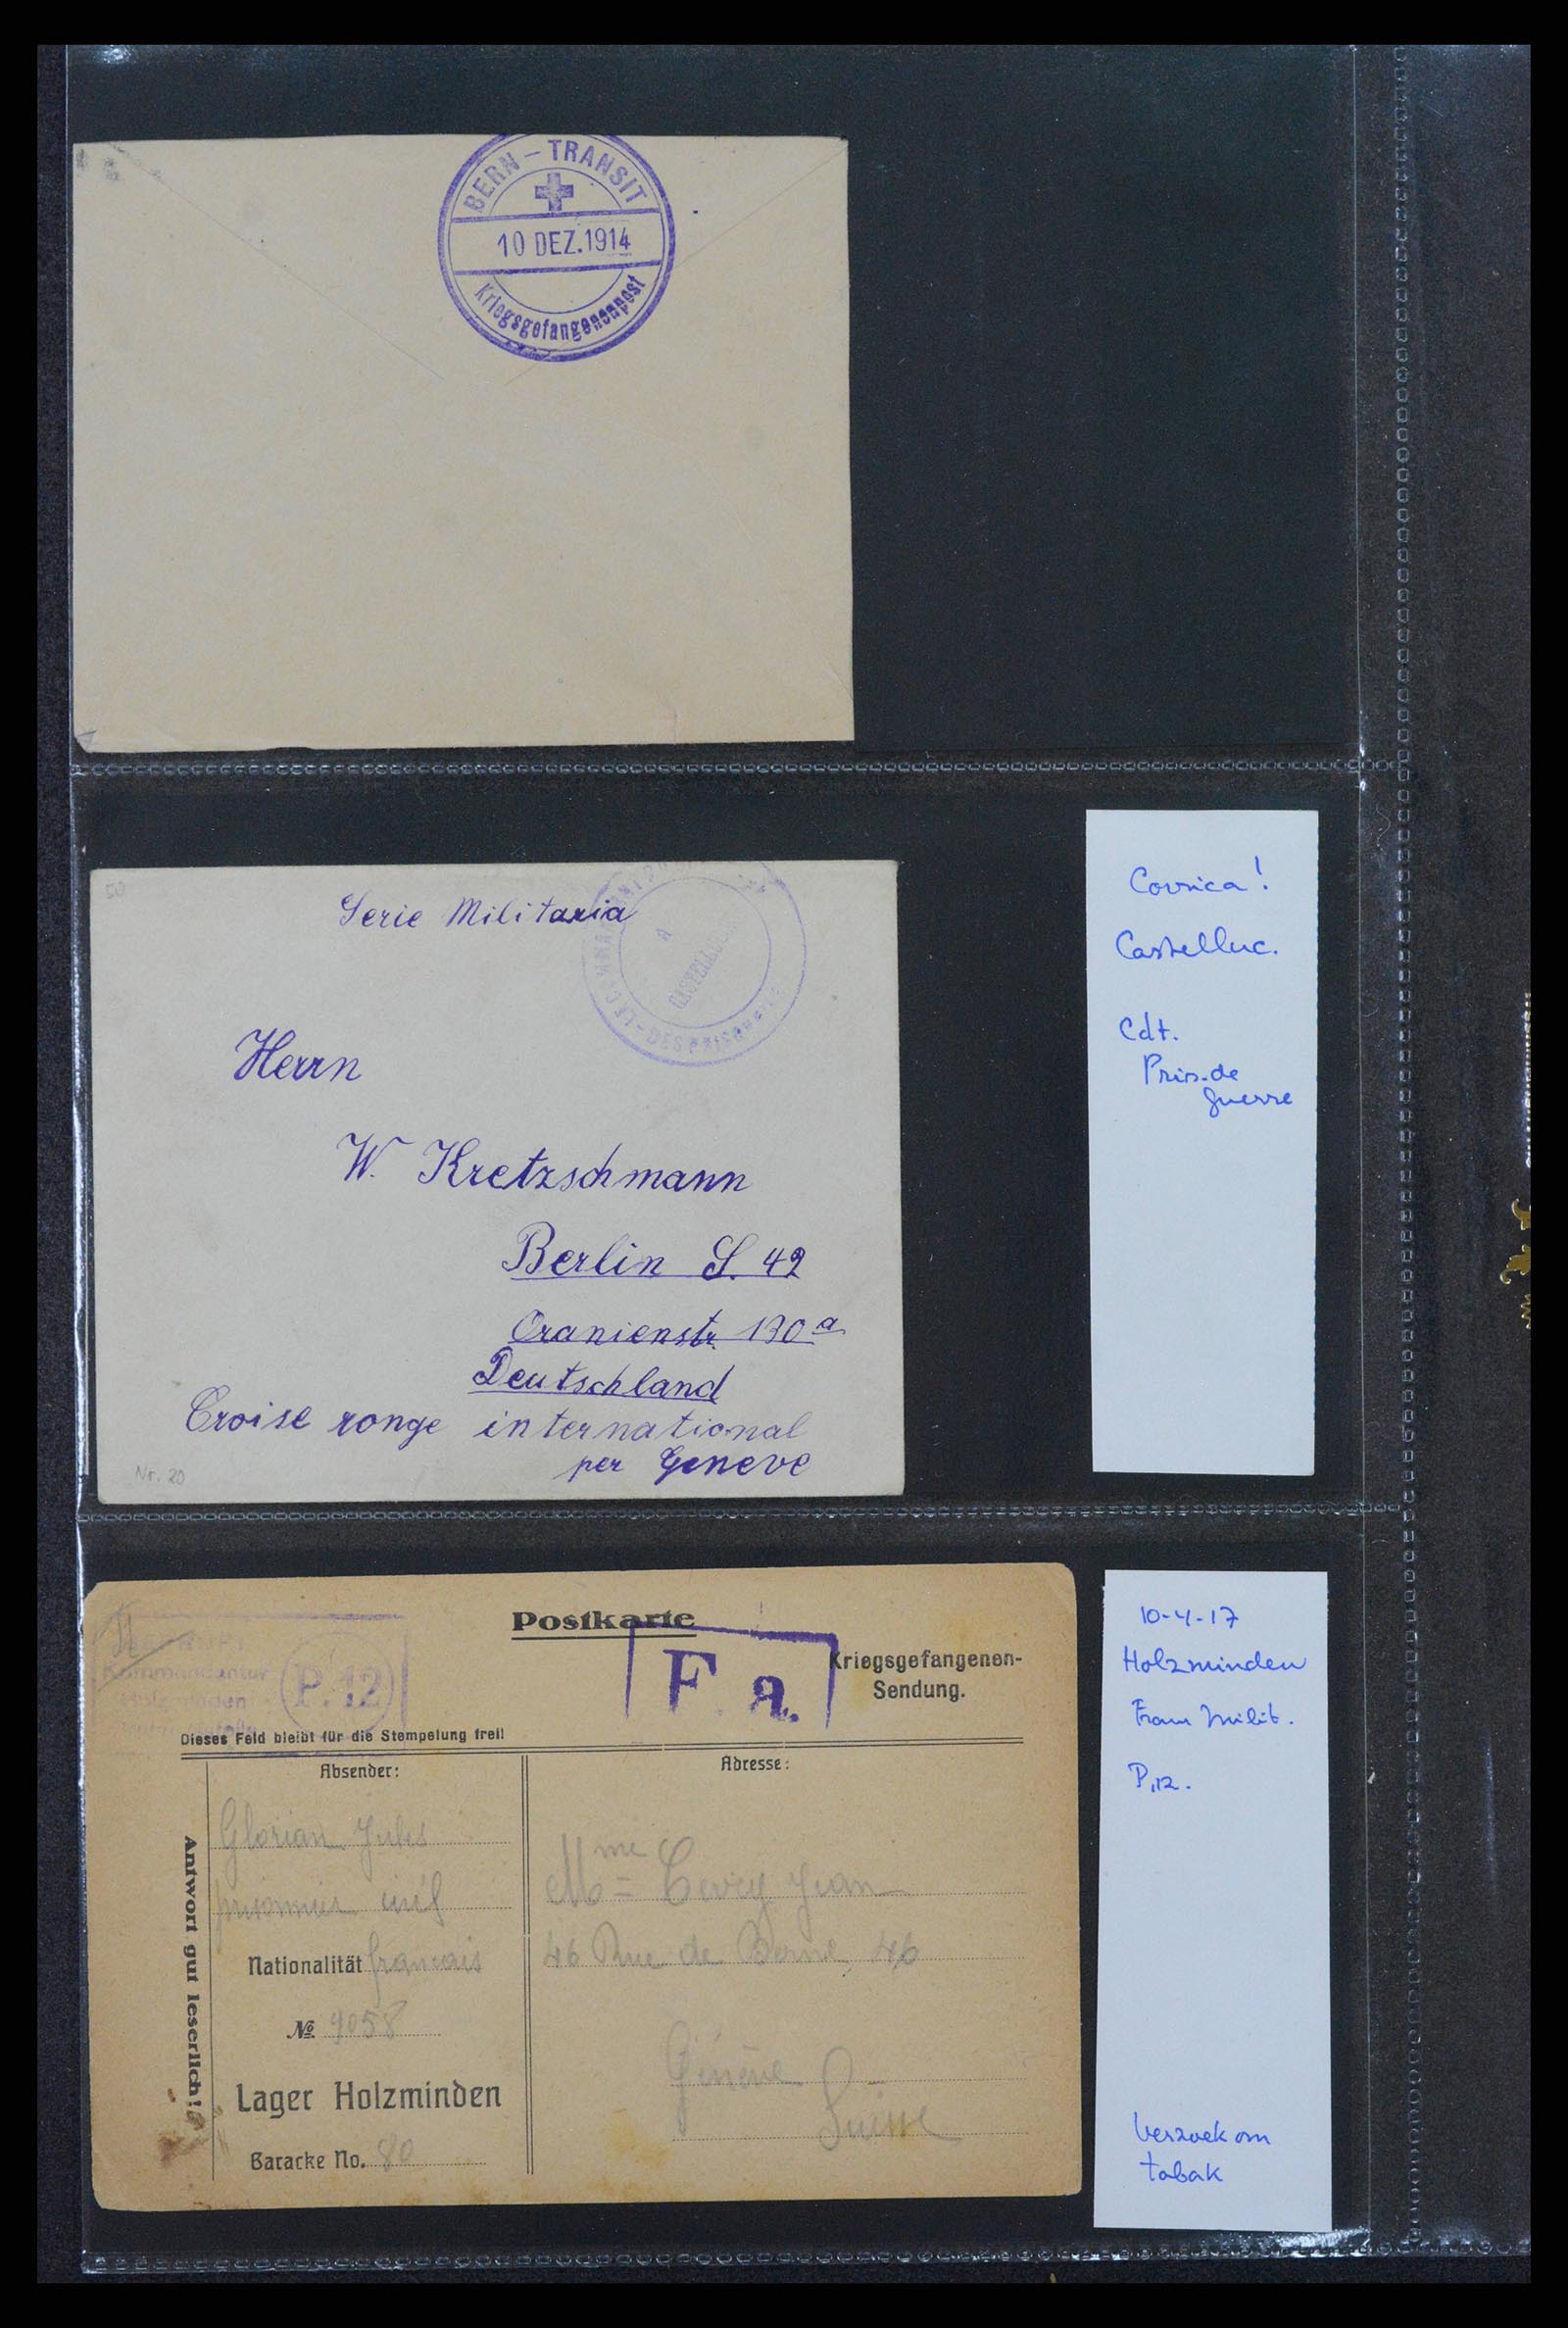 BERN - TRANSIT
10 DEZ.1914
Kriegsgefangenenpost
50
Serie Militaria
Herrn
W. Kretzschmann
Berlin S. 42
Oranienstr. 130 a
Deutschland
Croise ronge international
per Geneve
Nr. 20
Corsica!
Castelluc.
Cdt.
Pris. de
guerre
Postkarte
Kommandantur
Holzminden
P. 12
F. a.
Kriegsgefangenen-
Sendung.
Dieses Feld bleibt für die Stempelung frei!
Absender:
Glorian Jules
prisonnier civil
Nationalität francais
No. 9058
Lager Holzminden
Baracke No. 80
Antwort gut leserlich!
Adresse:
Mme Jean
46 Rue de Berne, 46
Genève
Suisse
10-4-17
Holzminden
Frans Milit.
P.12.
Verzoek om
tabak